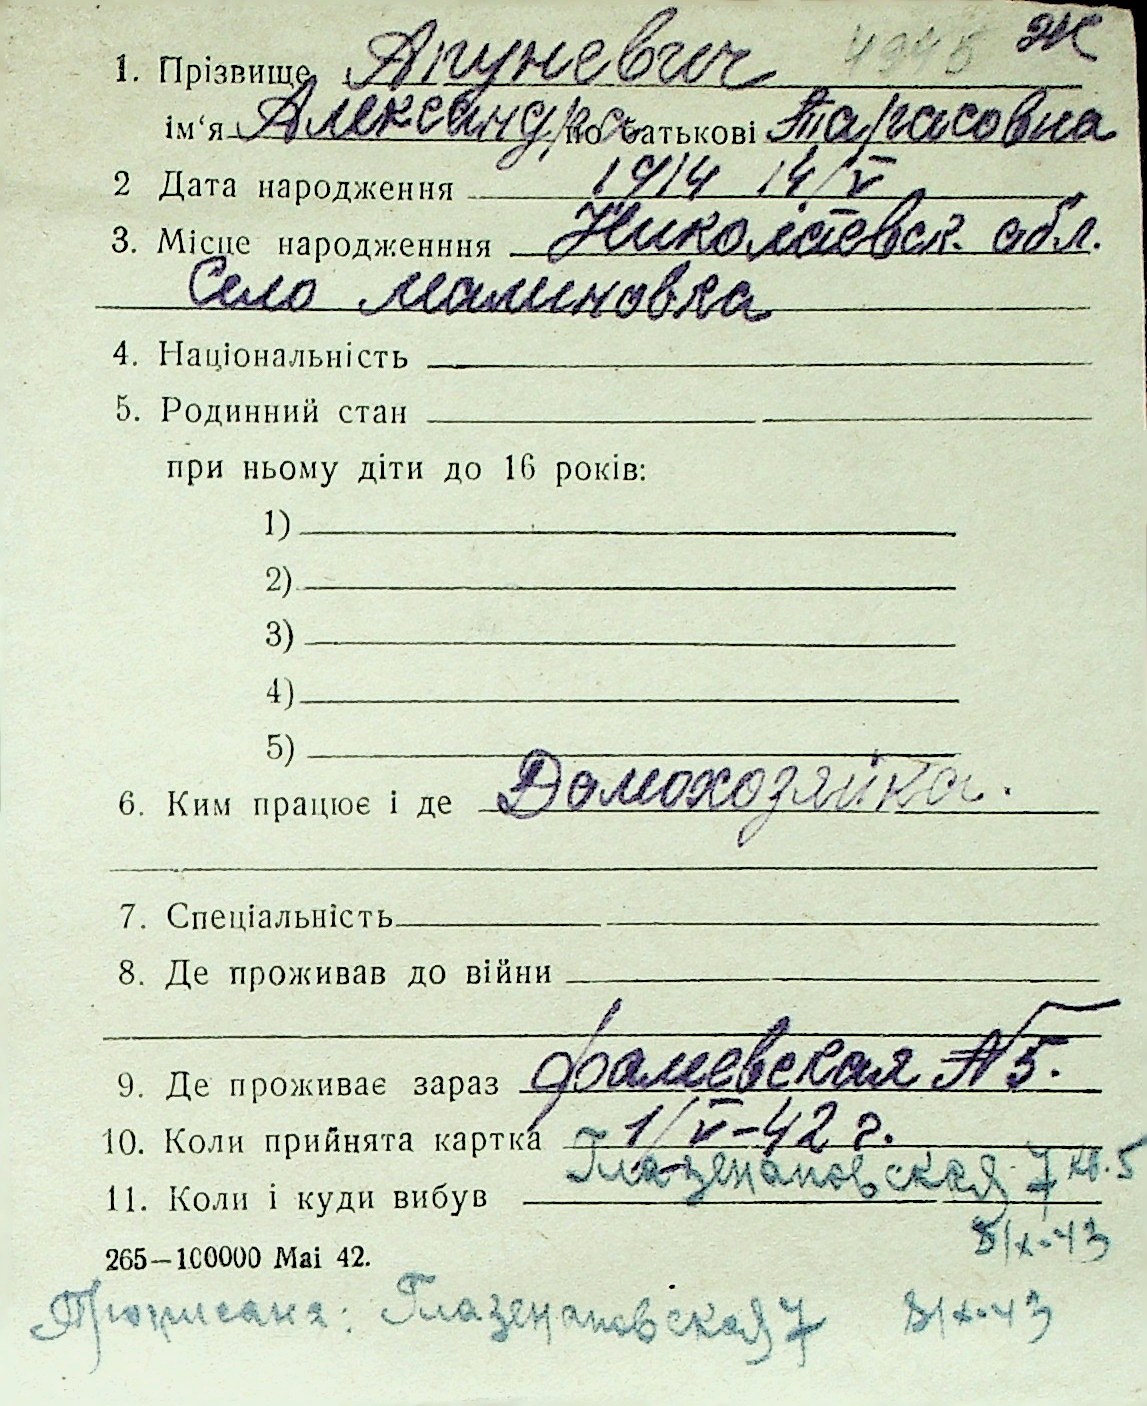 4945 Ж
1. Прізвище Апуневич
ім‘я Александра по батькові Тарасовна
2 Дата народження 1914 14/V
3. Місце народженння Николаевск. обл.
Село Малиновка
4. Національність
5. Родинний стан
при ньому діти до 16 років:
1)
2)
3)
4)
5)
6. Ким працює і де Домохозяйка.
7. Спеціальність
8. Де проживав до війни
9. Де проживає зараз Фалеевская №5.
10. Коли прийнята картка 1/V-42 г.
11. Коли і куди вибув Глазенаповская 7 кв. 5
8/X-43
265—100000 Mai 42.
Прописана: Глазенаповская 7 8/X-43